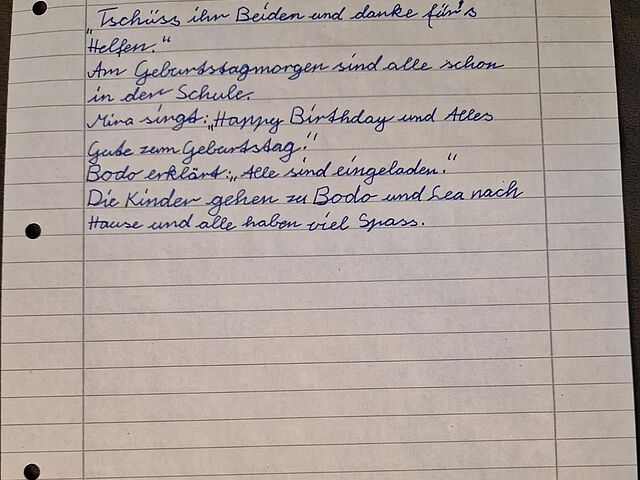 „Tschüss ihr Beiden und danke für's
Helfen.“
Am Geburtstagmorgen sind alle schon
in der Schule.
Mira singt: „Happy Birthday und Alles
Gute zum Geburtstag!“
Bodo erklärt: „Alle sind eingeladen.“
Die Kinder gehen zu Bodo und Lea nach
Hause und alle haben viel Spass.